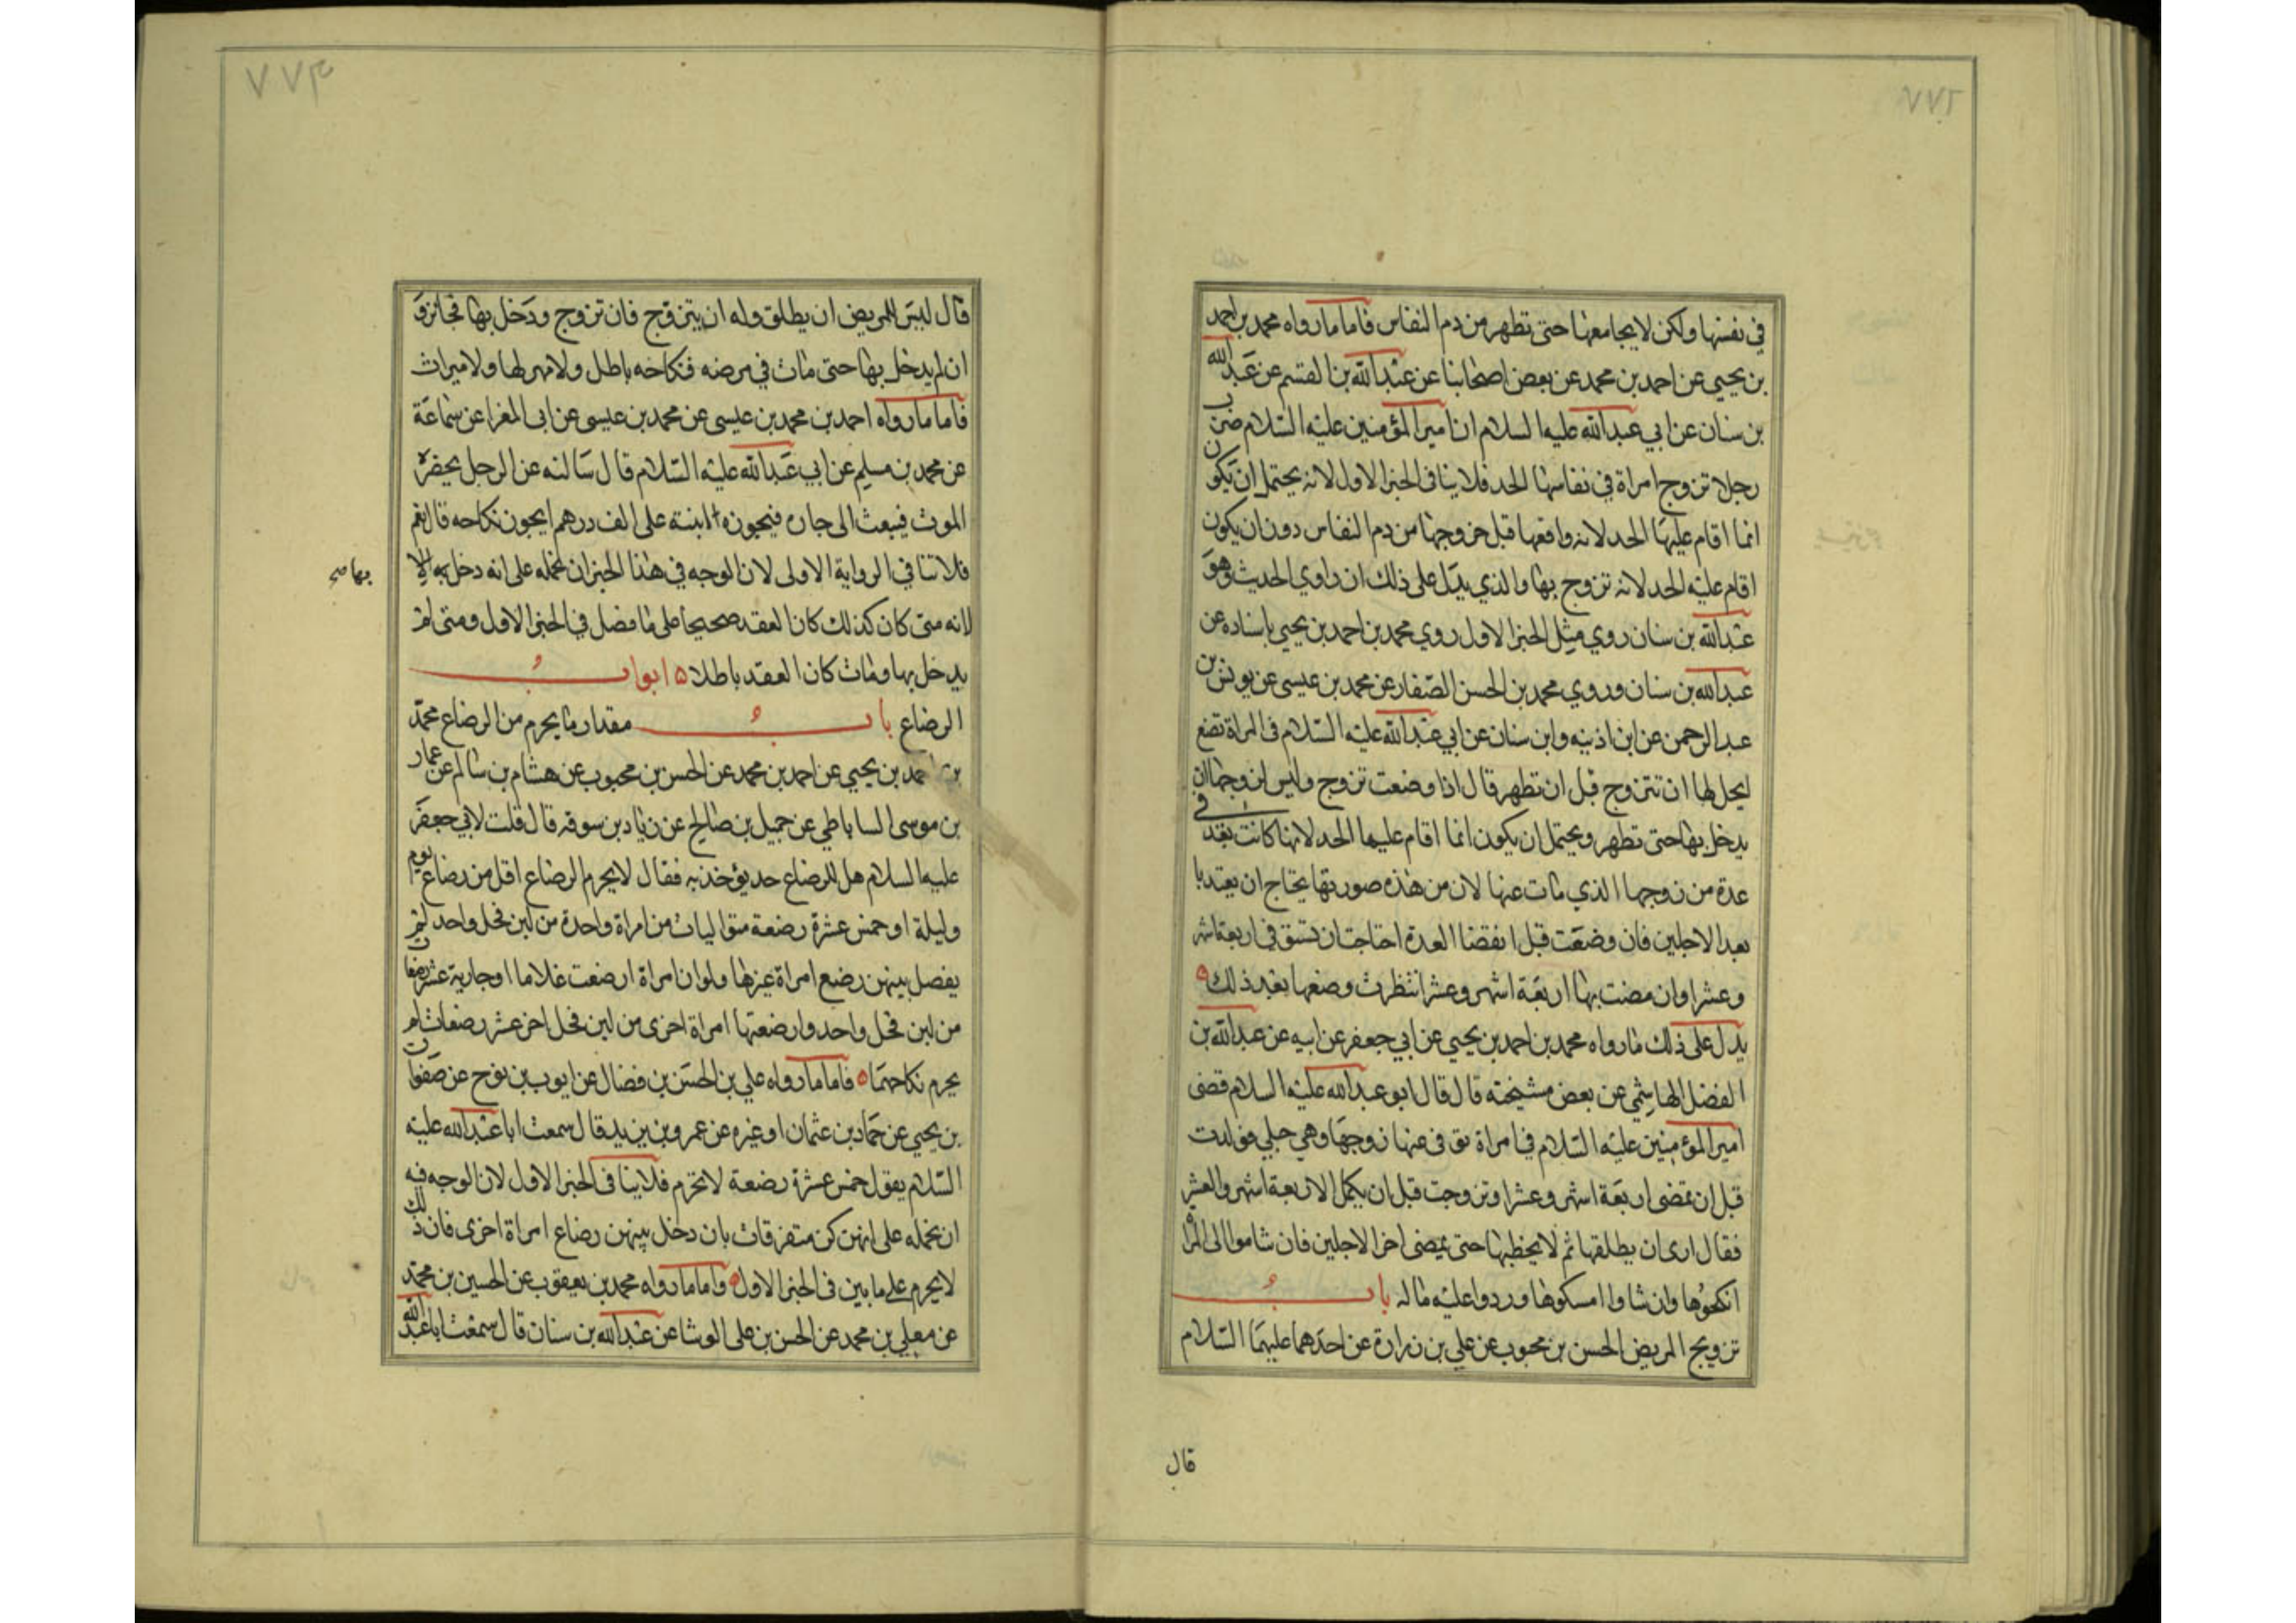 ٧٧٢
في نفسها ولكن لا يجامعها حتى تطهر من دم النفاس فاما ما رواه محمد بن احمد
بن يحيى عن احمد بن محمد عن بعض اصحابنا عن عبد الله بن القسم عن عبد الله
بن سنان عن ابي عبد الله عليه السلام ان امير المؤمنين عليه السلام ضرب
رجلا تزوج امراة في نفاسها الحد فلا ينافى الخبر الاول لانه يحتمل ان يكون
انما اقام عليها الحد لانه واقعها قبل خروجها من دم النفاس دون ان يكون
اقام عليه الحد لانه تزوج بها والذي يدل على ذلك ان راوي الحديث وهو
عبد الله بن سنان روي مثل الخبر الاول روي محمد بن احمد بن يحيى باسناده عن
عبد الله بن سنان وروي محمد بن الحسن الصفار عن محمد بن عيسى عن يونس بن
عبد الرحمن عن ابن اذينه وابن سنان عن ابي عبد الله عليه السلام في المراة تضع
ايحل لها ان تتزوج قبل ان تطهر قال اذا وضعت تزوج وليس لزوجها ان
يدخل بها حتى تطهر ويحتمل ان يكون انما اقام عليها الحد لانها كانت بعد في
عدة من زوجها الذي مات عنها لان من هذه صورتها يحتاج ان يعتد با
بعد الاجلين فان وضعت قبل انقضا العدة احتاجت ان تستوفى اربعة اشهر
وعشرا وان مضت بها اربعة اشهر وعشر انتظرت وضعها بعد ذلك
يدل على ذلك ما رواه محمد بن احمد بن يحيى عن ابي جعفر عن ابيه عن عبد الله بن
الفضل الهاشمي عن بعض مشيخته قال قال ابو عبد الله عليه السلام قضى
امير المؤمنين عليه السلام في امراة توفى عنها زوجها وهي حبلي فولدت
قبل ان تمضى اربعة اشهر وعشرا وتزوجت قبل ان يكمل الاربعة اشهر والعشر
فقال ارى ان يطلقها ثم لا يخطبها حتى يمضى اخر الاجلين فان شاموالى المراة
انكحوها وان شاوا امسكوها وردوا عليه ماله باب
تزويج المريض الحسن بن محبوب عن علي بن زرارة عن احدهما عليهما السلام
قال
٧٧٣
قال ليس للمريض ان يطلق وله ان يتزوج فان تزوج ودخل بها فجائز و
ان لم يدخل بها حتى مات في مرضه فنكاحه باطل ولا مهر لها ولا ميراث
فاما ما رواه احمد بن محمد بن عيسى عن محمد بن عيسى عن ابى المغرا عن سماعة
عن محمد بن مسلم عن ابي عبد الله عليه السلام قال سالته عن الرجل يحضره
الموت فيبعث الى جاره فيجوزه ابنته على الف درهم ايجوز نكاحه قال نعم
فلا تنافي الرواية الاولى لان الوجه في هذا الخبر ان نحمله على انه دخل
بها صح
لانه متى كان كذلك كان العقد صحيحا على ما فصل في الخبر الاول ومتى لم
يدخل بها ومات كان العقد باطلا ابواب
الرضاع باب مقدار ما يحرم من الرضاع محمد
بن احمد بن يحيى عن احمد بن محمد عن الحسن بن محبوب عن هشام بن سالم عن عمار
بن موسى الساباطي عن جميل بن صالح عن زياد بن سوقه قال قلت لابي جعفر
عليه السلام هل للرضاع حد يؤخذ به فقال لا يحرم الرضاع اقل من رضاع يوم
وليلة او خمس عشرة رضعة متواليات من امراة واحدة من لبن فحل واحد لم
يفصل بينهن رضع امراة غيرها ولو ان امراة ارضعت غلاما او جارية عشر رضعات
من لبن فحل واحد وارضعتها امراة اخرى من لبن فحل اخر عشر رضعات لم
يحرم نكاحهما فاما ما رواه علي بن الحسن بن فضال عن ايوب بن نوح عن صفوان
بن يحيى عن حماد بن عثمان او غيره عن عمرو بن يزيد قال سمعت ابا عبد الله عليه
السلام يقول خمس عشرة رضعة لا تحرم فلا ينافى الخبر الاول لان الوجه فيه
ان نحمله على انهن كن متفرقات بان دخل بينهن رضاع امراة اخرى فان ذلك
لا يحرم على ما بين في الخبر الاول واما ما رواه محمد بن يعقوب عن الحسين بن محمد
عن معلي بن محمد عن الحسن بن على الوشا عن عبد الله بن سنان قال سمعت ابا عبد الله